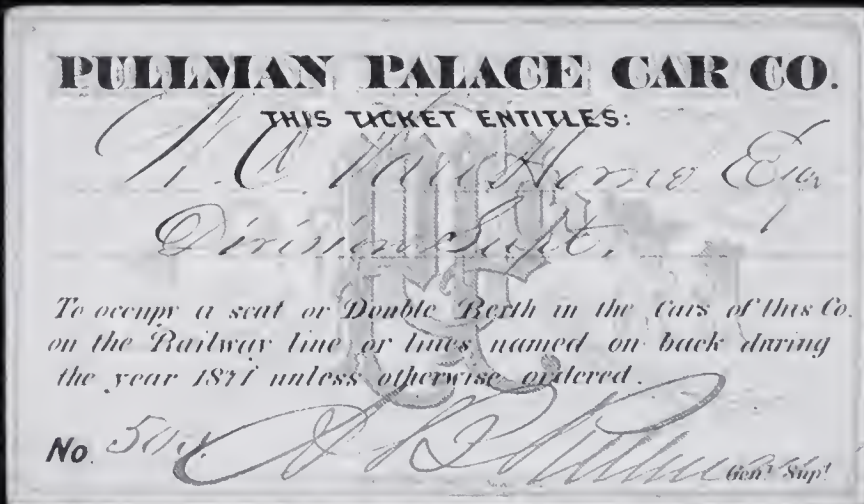 PULLMAN PALACE CAR CO.
THIS TICKET ENTITLES:
W. C. Van Horne Esq
Division Supt.
To occupy a seat or Double Berth in the Cars of this Co.
on the Railway line or lines named on back during
the year 1871 unless otherwise ordered.
No. A B Pullman
Genl. Supt.